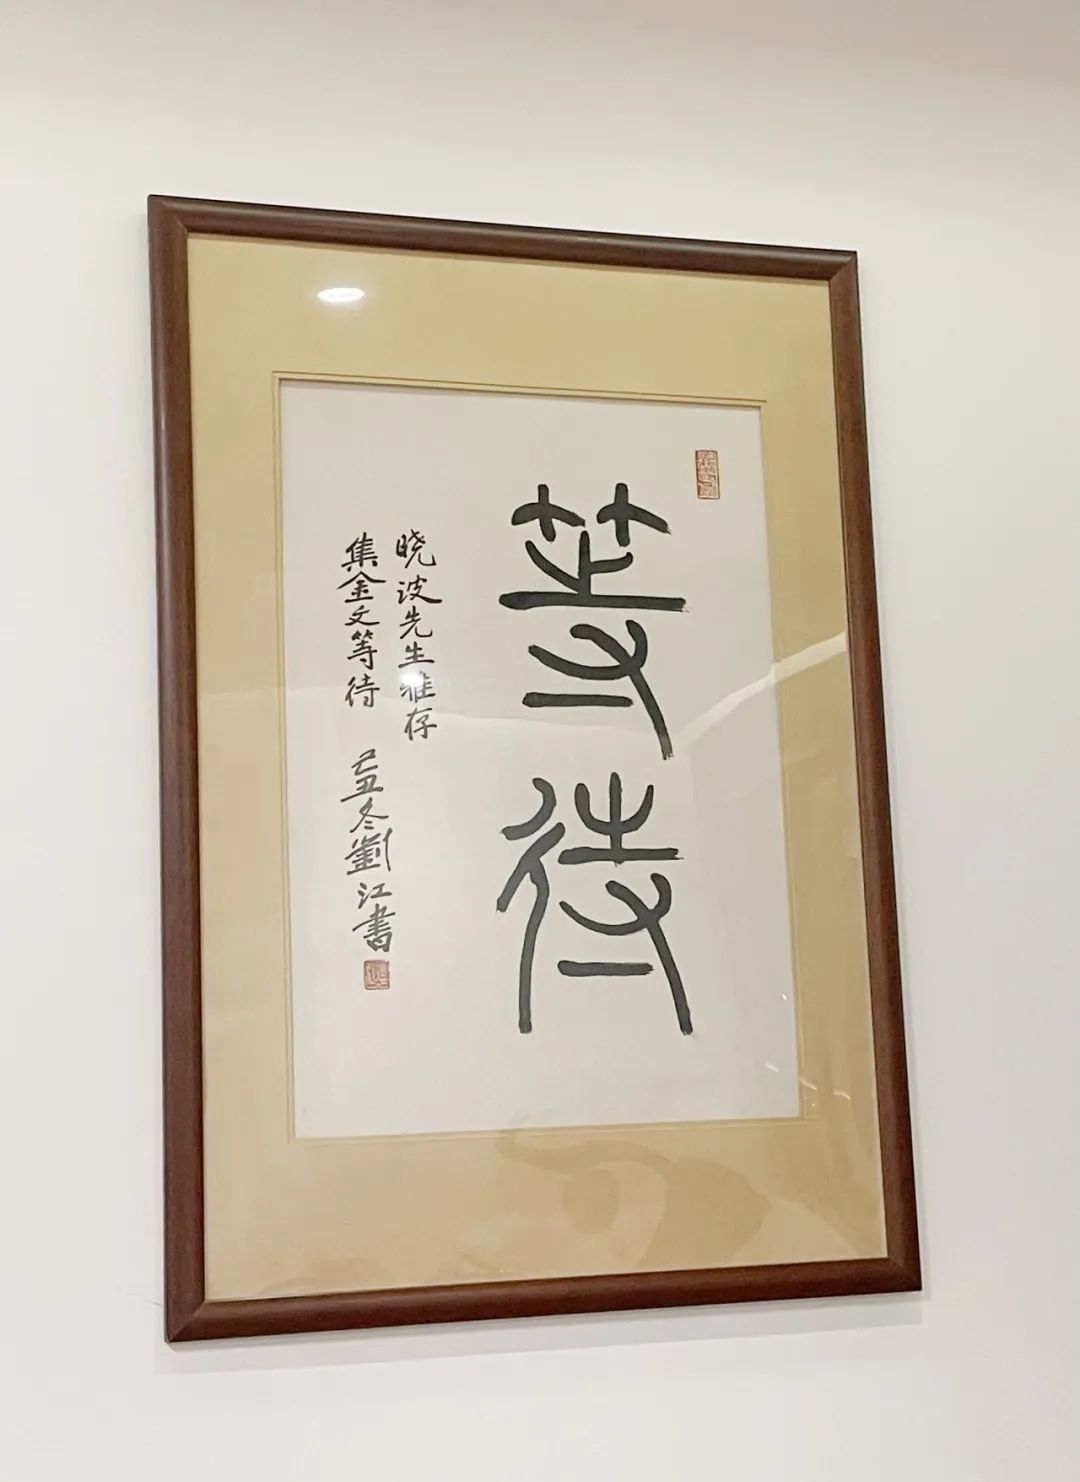 等待
晓波先生雅存
集金文等待 己丑冬劉江書